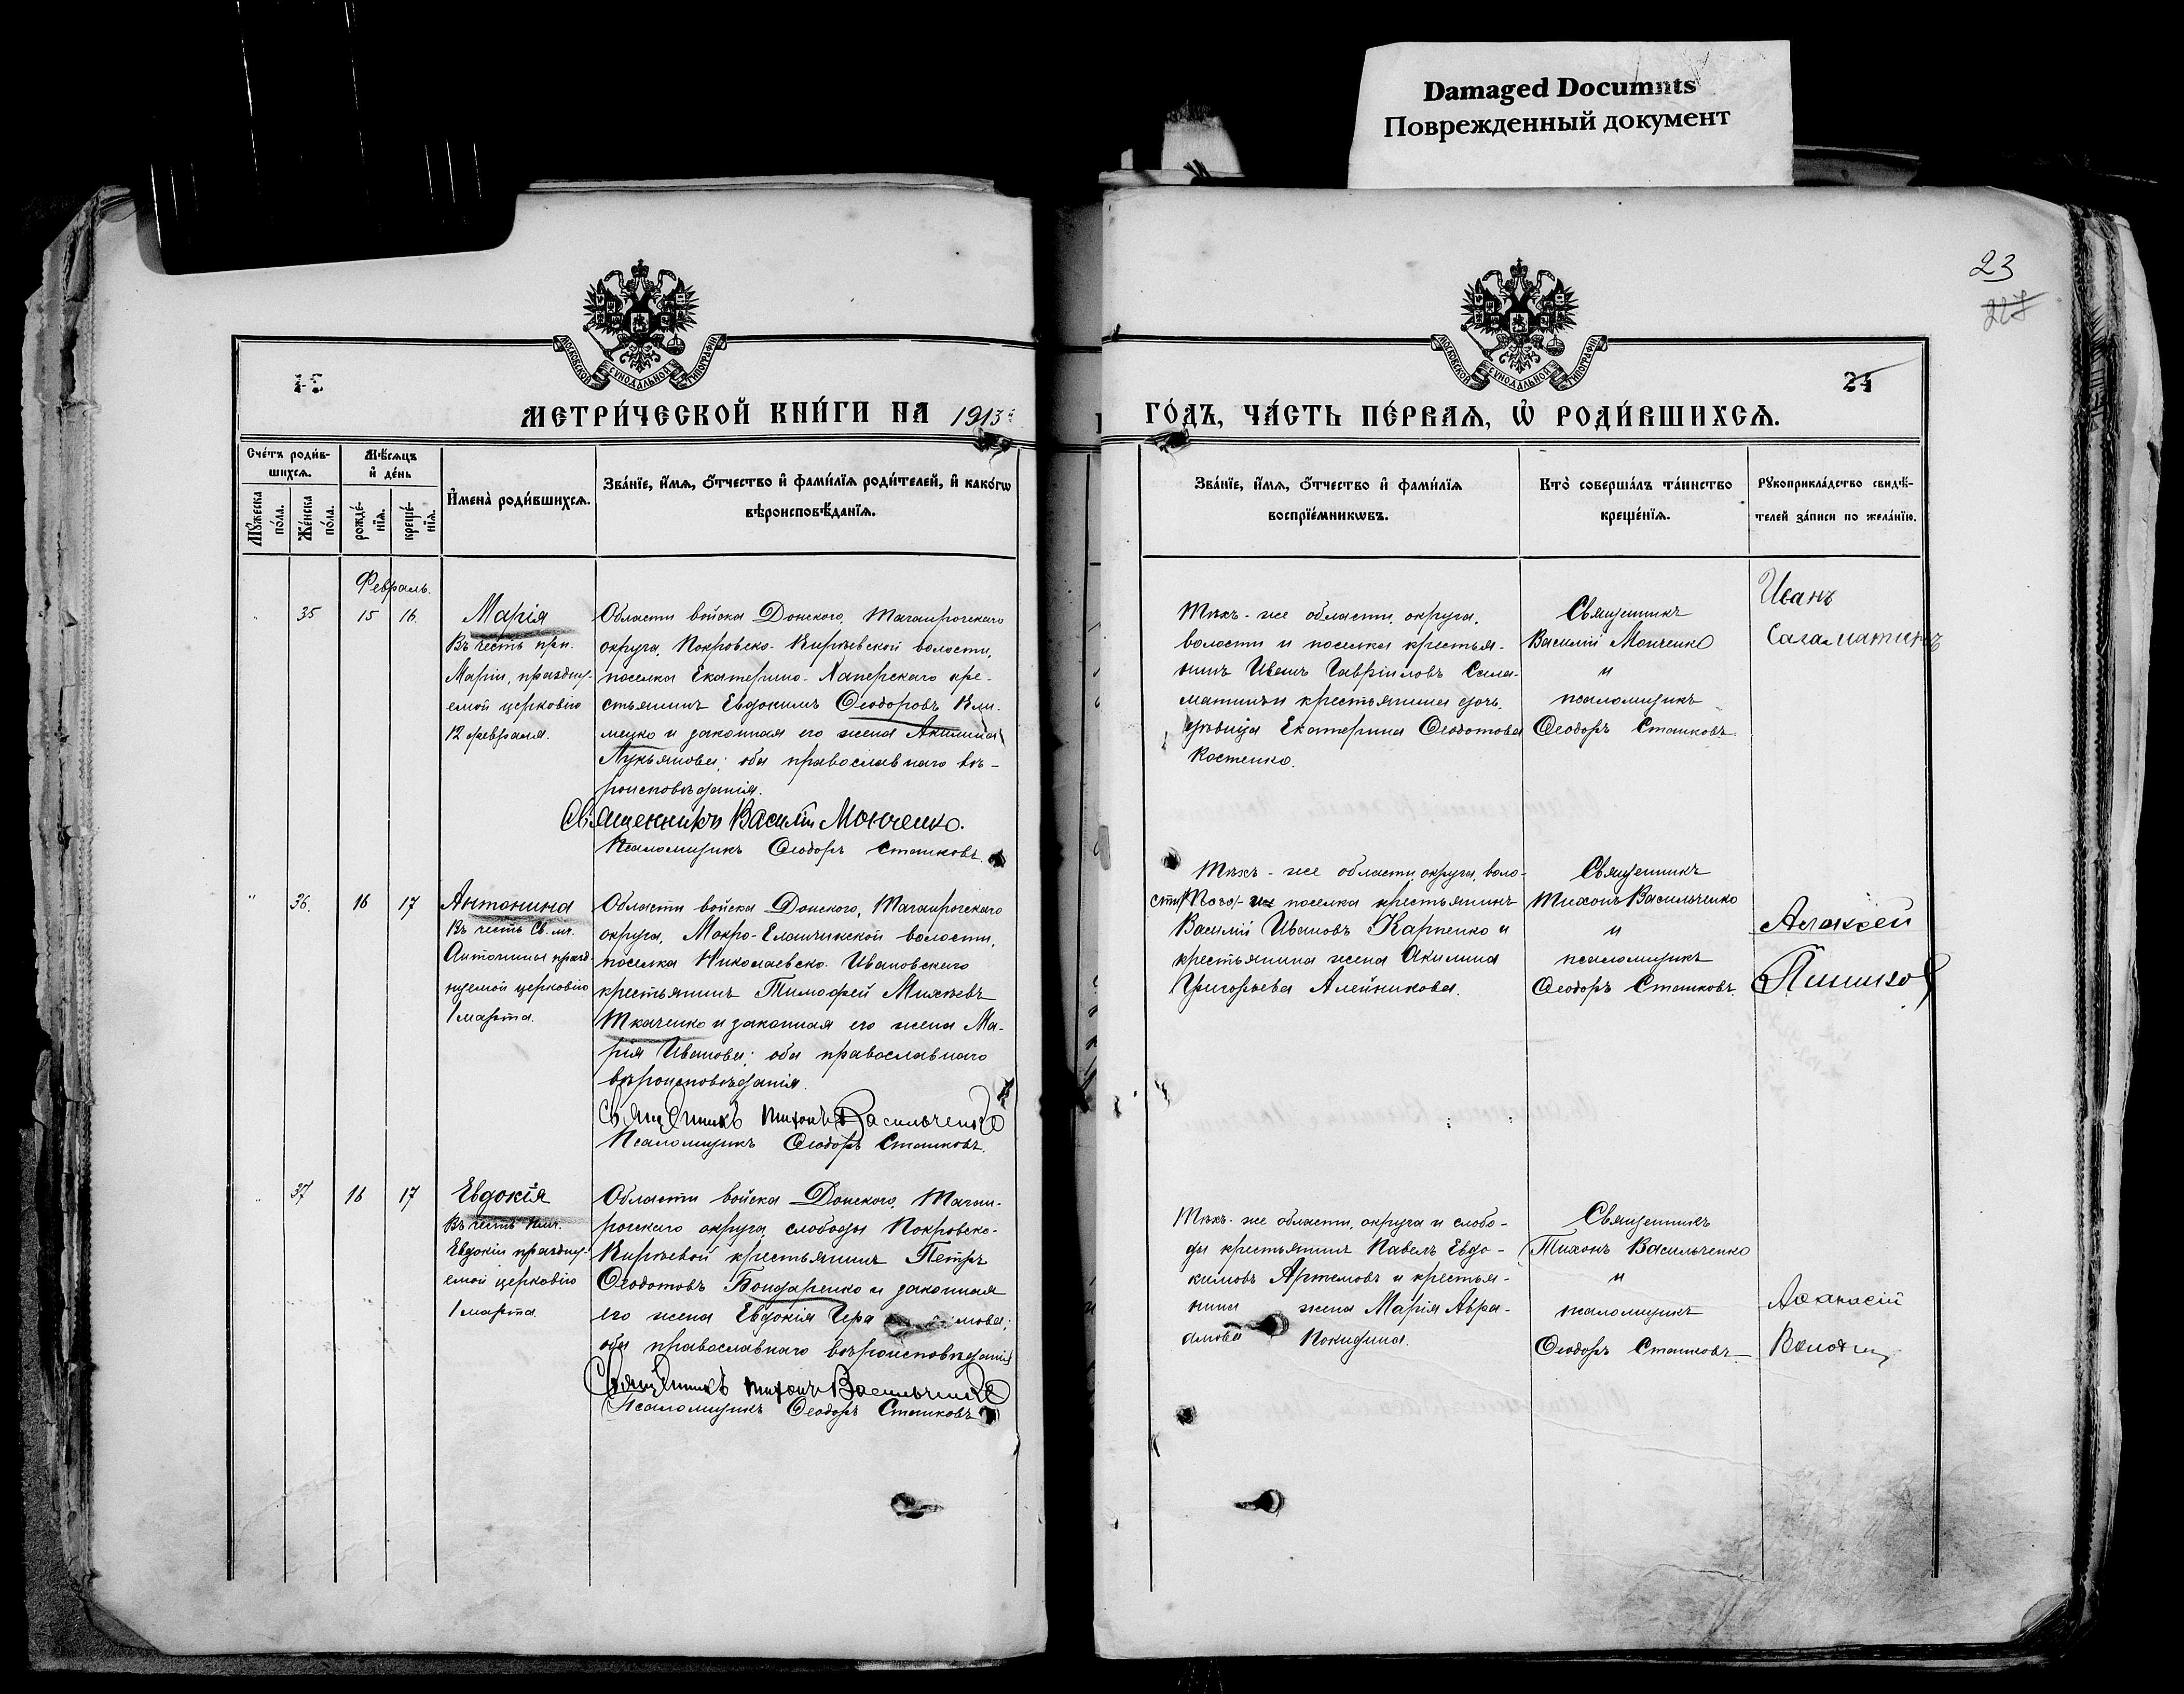 Damaged Documnts
Поврежденный документ
23
24
МОСКОВСКОЙ СѴНОДАЛЬНОЙ ТИПОГРАФІИ
МОСКОВСКОЙ СѴНОДАЛЬНОЙ ТИПОГРАФІИ
МЕТРИ́ЧЕСКОЙ КНИ́ГИ НА 1913й
ГО́ДЪ, ЧА́СТЬ ПЕ́РВАЯ, Ѡ РОДИ́ВШИХСЯ.
Сче́тъ роди́в-
шихся.
Мѣ́сяцъ
и де́нь
Мꙋ́жеска
по́ла.
Же́нска
по́ла.
рожде́-
нїя.
креще́-
нїя.
И҆мена̀ роди́вшихся.
Зва́нїе, и҆́мя, ѻ҆́тчество и҆ фами́лїя роди́телей, и҆ како́гѡ
вѣроисповѣ́данїя.
Зва́нїе, и҆́мя, ѻ҆́тчество и҆ фами́лїя
воспрїе́мникѡвъ.
Кто̀ соверша́лъ та́инство
креще́нїя.
Рꙋкоприкла́дство свидѣ́-
телей за́писи по жела́нїю.
Февраль.
" 35 15 16.
Марія
Въ честь прп.
Маріи, праздну-
емой церковію
12 февраля.
Области войска Донского, Таганрогскаго
округа, Покровско-Кирѣевской волости,
поселка Екатерино-Хаперскаго кре-
стьянинъ Евдокимъ Ѳеодоровъ Кли-
мецко и законная его жена Акилина
Лукьянова; оба православнаго вѣ-
роисповѣданія.
Священникъ Василій Мончекко.
Псаломщикъ Ѳеодоръ Сташковъ.
Тѣхъ-же области, округа,
волости и поселка крестья-
нинъ Иванъ Гавріиловъ Сала-
матинъ и крестьянина дочь,
дѣвица Екатерина Ѳеодотова
Костенко.
Священникъ
Василій Монченко
и
псаломщикъ
Ѳеодоръ Сташковъ.
Иванъ
Саламатинъ
" 36. 16 17
Антонина
Въ честь Св. мч.
Антонины празд-
нуемой церковію
1 марта.
Области войска Донского, Таганрогскаго
округа, Мокро-Еланчикской волости,
поселка Николаевско-Ивановскаго
крестьянинъ Тимоѳей Михѣевъ
Ткаченко и законная его жена Ма-
рія Иванова; оба православнаго
вѣроисповѣданія.
Священникъ Тихонъ Васильченко
Псаломщикъ Ѳеодоръ Сташковъ.
Тѣхъ-же области, округа, воло-
сти, того-же поселка крестьянинъ
Василій Ивановъ Карпенко и
крестьянина жена Акилина
Григорьева Алейникова.
Священникъ
Тихонъ Васильченко
и
псаломщикъ
Ѳеодоръ Сташковъ.
Алексей
" 37 16 17
Евдокія
Въ честь пмч.
Евдокіи праздну-
емой церковію
1 марта.
Области войска Донского, Таган-
рогскаго округа, слободы Покровско-
Кирѣевой крестьянинъ Петръ
Ѳеодотовъ Бондаренко и законная
его жена Евдокія Гера мова;
оба православнаго вѣроисповѣданія
Священникъ Тихонъ Васильченко
Псаломщикъ Ѳеодоръ Сташковъ
Тѣхъ-же области, округа и слобо-
ды крестьянинъ Павелъ Евдо-
кимовъ Артемовъ и крестья-
нина жена Марія Авра-
амова Покидина.
Священникъ
Тихонъ Васильченко
и
псаломщикъ
Ѳеодоръ Сташковъ.
Афанасій